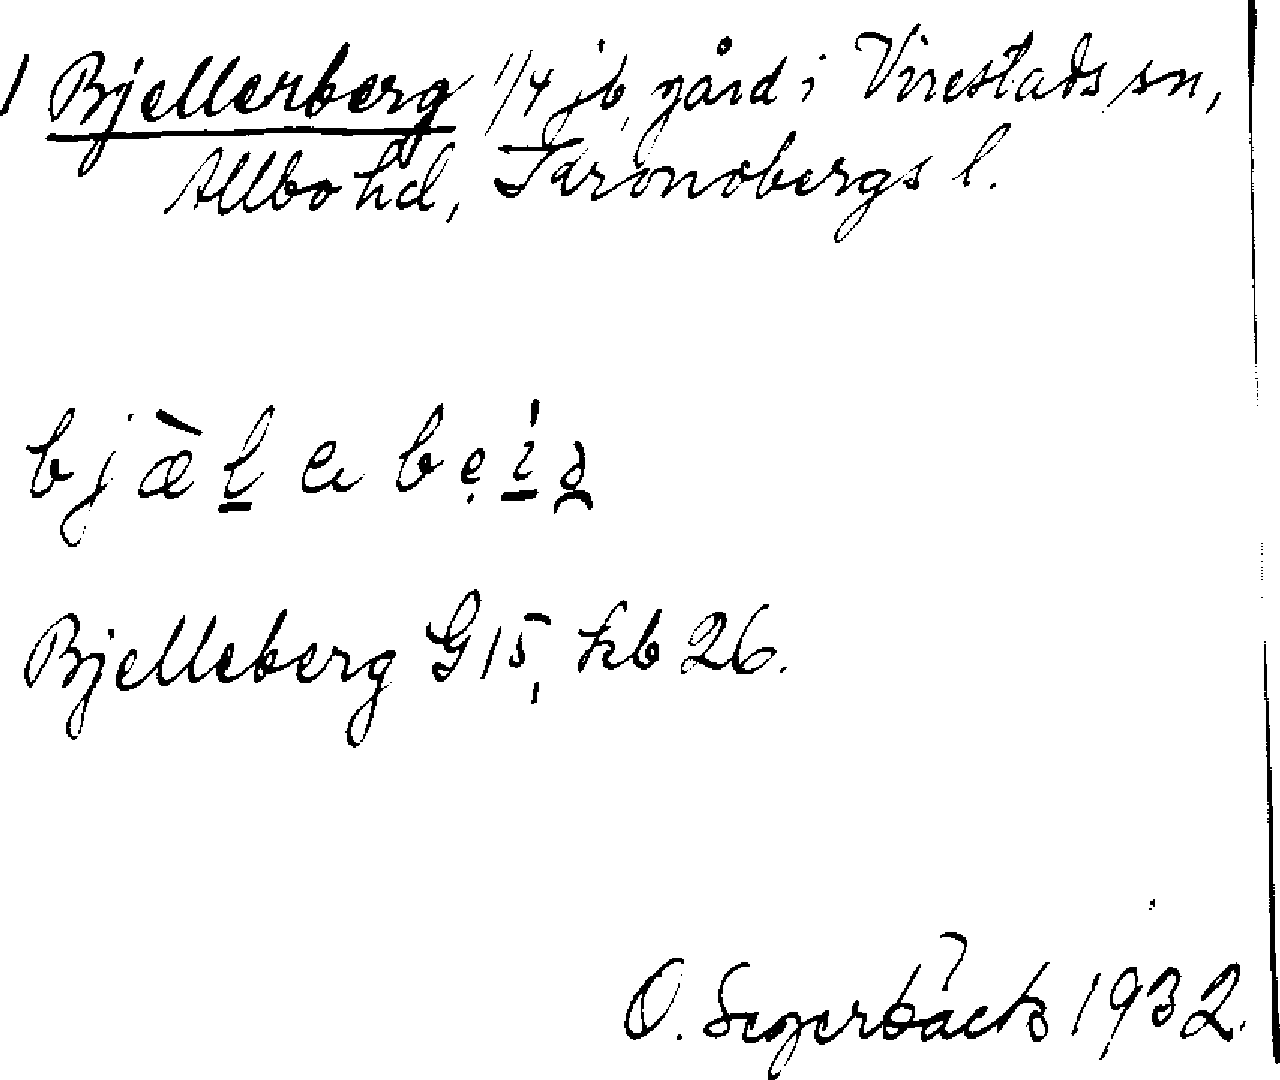 1 Bjellerberg 1/4 jb. gård i Virestads sn,
Allbo hd, Kronobergs l.
bjæ̀l̠ a bẹ
Bjelleberg G 15, kb 26.
O. Segerbäck 1932.